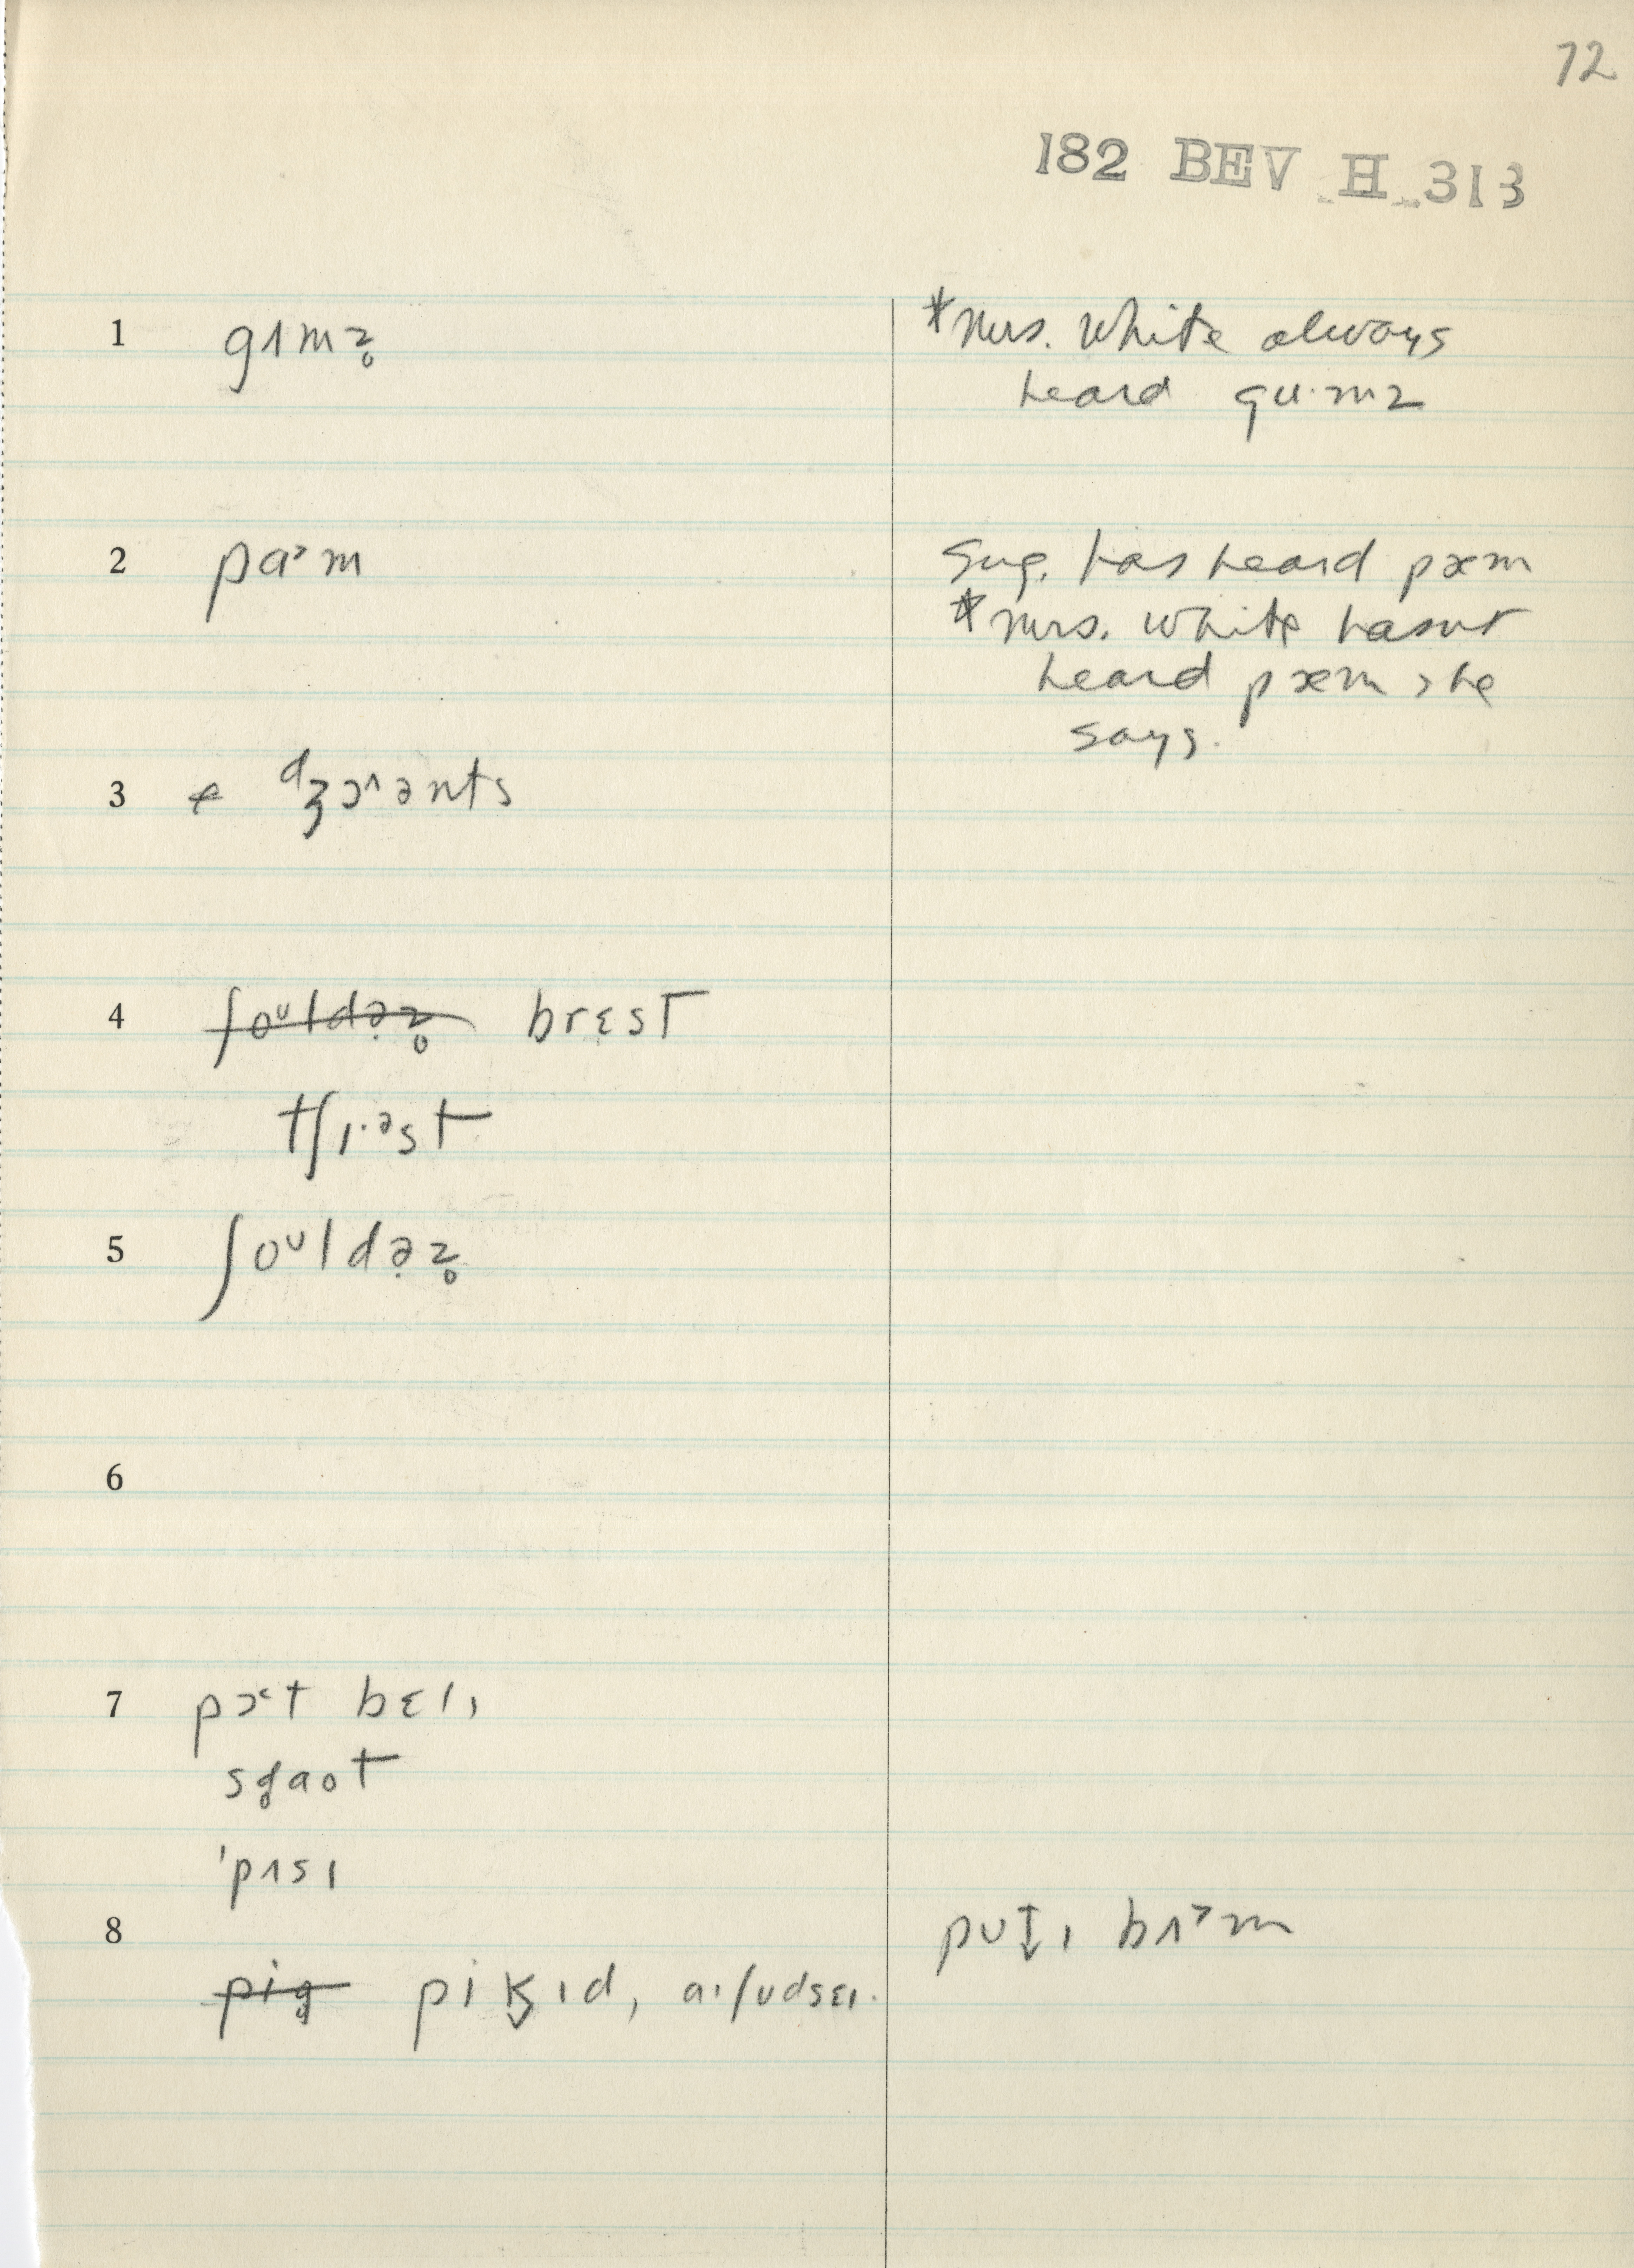 72
182 BEV H 313
1 gʌmz̥ *Mrs. White always
heard gu·mz
2 pa˃m Sug. has heard pæm
*Mrs. White hasnt
heard pæm she
says.
3 dʒɔ˄ənts
4 ʃoᵘldə̣z̥ brɛst
tʃɪ·ᵊst
5 ʃoᵘldə̣z̥
6
7 pɔ˂t bɛlɪ
sg̥aot
'pʌsɪ
8 put̬ɪ bʌ˃m
pig̥ pik̬ɪd,